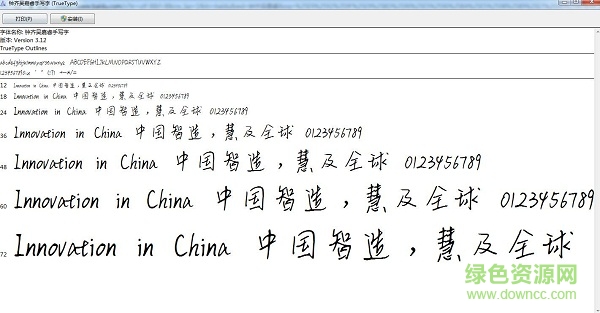 钟齐吴嘉睿手写字 (TrueType)
打印(P)
安装(I)
字体名称: 钟齐吴嘉睿手写字
版本: Version 3.12
TrueType Outlines
abcdefghijklmnopqrstuvwxyz ABCDEFGHIJKLMNOPQRSTUVWXYZ
12 Innovation in China 中国智造，慧及全球 0123456789
18 Innovation in China 中国智造，慧及全球 0123456789
24 Innovation in China 中国智造，慧及全球 0123456789
36 Innovation in China 中国智造，慧及全球 0123456789
48 Innovation in China 中国智造，慧及全球 0123456789
60 Innovation in China 中国智造，慧及全球 0123456789
72 Innovation in China 中国智造，慧及全球
绿色资源网
www.downcc.com